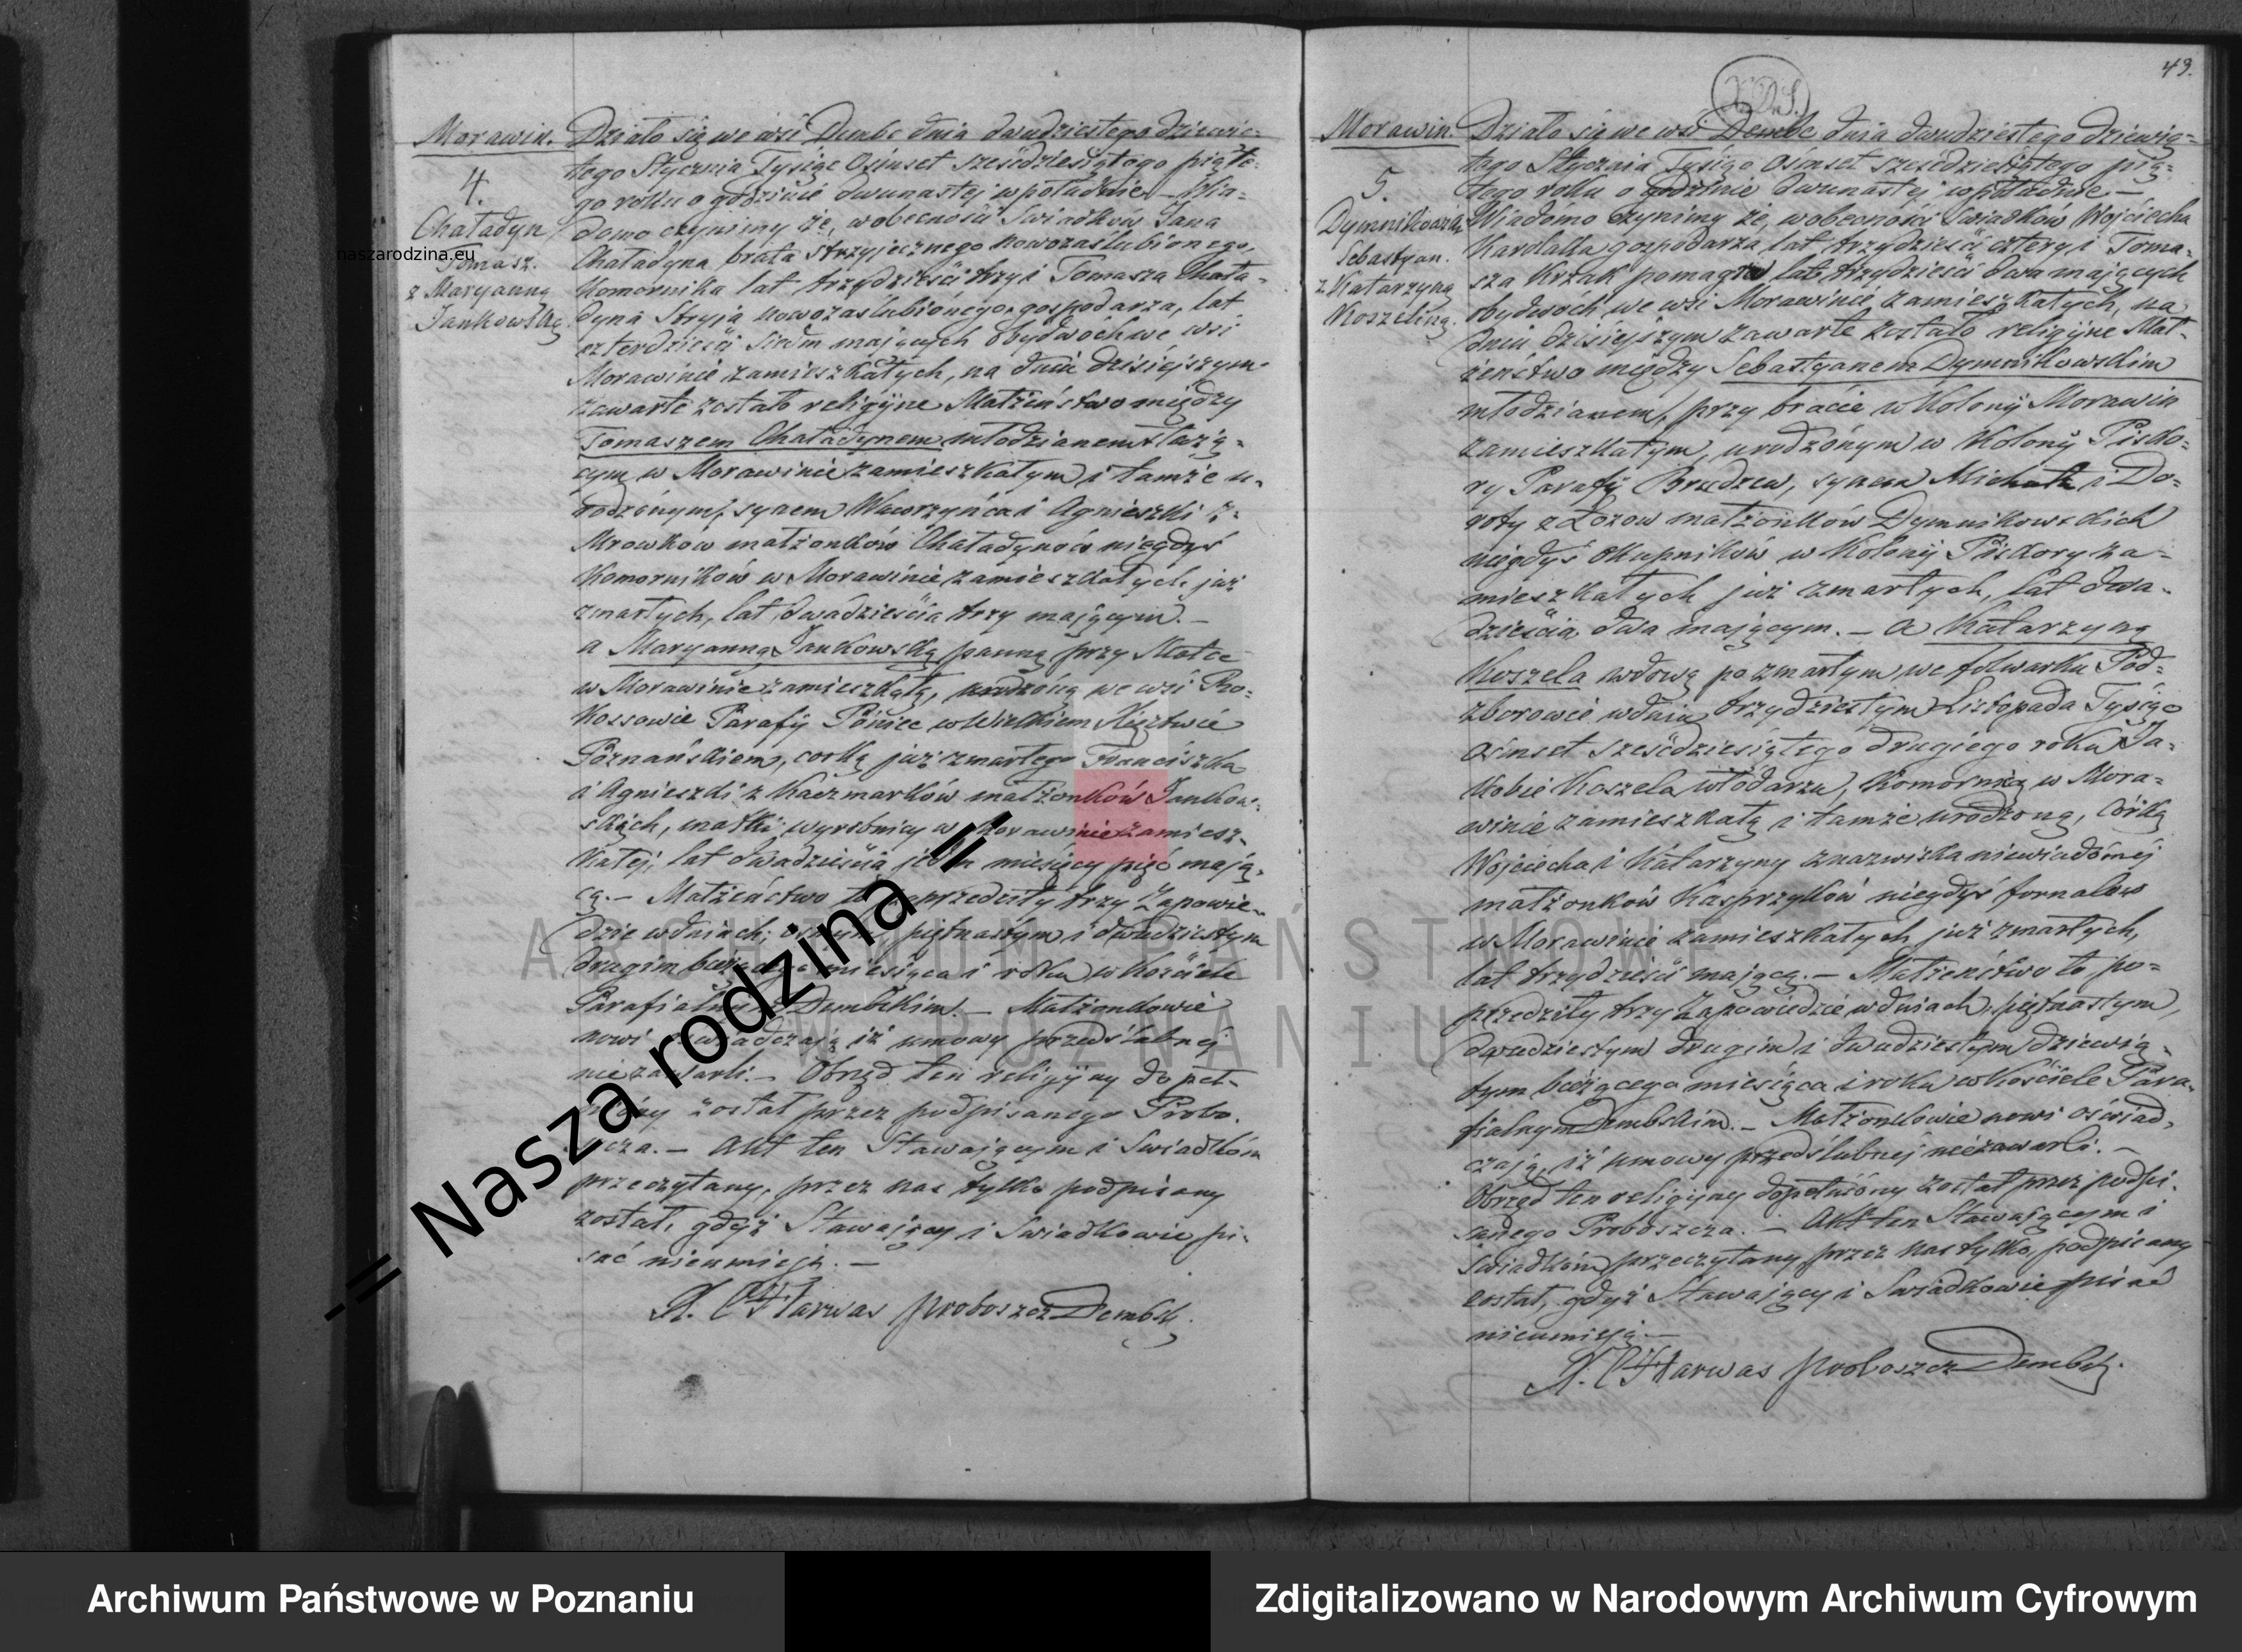 Morawin.
4.
Chaładyn
Tomasz.
z Maryanną
Jankowską
naszarodzina.eu
Działo się we wsi Dembe dnia dwudziestego dziewią-
tego Stycznia Tysiąc Ośmset sześćdziesiątego piąte-
go roku o godzinie dwunastej w południe. Wia-
domo czynimy że, w obecności Swiadków Jana
Chaładyna brata stryjecznego nowozaslubionego,
Komornika lat trzydzieści trzy i Tomasza Chała-
dyna Stryja nowozaślubionego, gospodarza, lat
czterdzieści siedm mających obydwóch we wsi
Morawinie zamieszkałych, na dniu dzisiejszym
zawarte zostało religijne Małżeństwo między
Tomaszem Chaładynem młodzianem służą-
cym w Morawinie zamieszkałym i tamże u-
rodzonym, synem Wawrzyńca i Agnieszki z
Mrowkow małżonków Chaładynów niegdyś
Komorników w Morawinie zamieszkałych już
zmarłych, lat dwadzieścia trzy mającym. –
a Maryanną Jankowską panną przy Matce
w Morawinie zamieszkałą, urodzoną we wsi Ro-
kossowie Parafii Poniec w Wielkiem Xięztwie
Poznańskiem, corką już zmarłego Franciszka
i Agnieszki z Kaczmarków małżonków Jankow-
skich, matki wyrobnicy w Morawinie zamiesz-
kałej, lat dwadzieścia jeden miesięcy pięć mają-
cą. – Małżeństwo to poprzedziły trzy Zapowie-
dzie w dniach; osmym, piętnastym i dwudziestym
drugim bieżącego miesiąca i roku w Kościele
Parafialnym Dembskim. – Małżonkowie
nowi oswiadczają iż umowy przedślubnej
niezawarli. – Obrząd ten religijny dopeł-
niony został przez podpisanego Probo-
szcza. – Akt ten Stawającym i Swiadkóm
przeczytany, przez nas tylko podpisany
został, gdyż Stawający i Swiadkowie pi-
sać nieumieją. –
X. Harwas proboszcz Dembski.
49.
Morawin.
5.
Sebastyan.
z Katarzyną
Koszeliną.
Działo się we wsi Dembe dnia dwudziestego dziewią-
tego Stycznia Tysiąc Ośmset sześćdziesiątego pią-
tego roku o godzinie dwunastej w południe. –
Wiadomo czynimy że, w obecności Swiadków Wojciecha
Karolaka gospodarza lat trzydzieści cztery i Toma-
sza Krzak pomagra lat trzydzieści dwa mających
obydwóch we wsi Morawinie zamieszkałych, na
dniu dzisiejszym zawarte zostało religijne Mał-
żeństwo między Sebastyanem Dymnikowskim
młodzianem, przy bracie w Kolonij Morawin
zamieszkałym, urodzonym w Kolonij Pisko-
ry Parafij Brudzew, synem Michała i Do-
roty z Łozow małżonków Dymnikowskich
niegdyś Okupników w Kolonij Piskory za-
mieszkałych już zmarłych, lat dwa-
dzieścia dwa mającym. – A Katarzyną
Koszela wdową po zmarłym we folwarku Pod-
zborowie w dniu trzydziestym Listopada Tysiąc
Ośmset sześćdziesiątego drugiego roku Ja-
kobie Koszela włódarzu, Komornicą w Mora-
winie zamieszkałą i tamże urodzoną, Córką
Wojciecha i Katarzyny z nazwiska niewiadomej
małżonków Kasprzyków niegdyś fornalow
w Morawinie zamieszkałych już zmarłych,
lat trzydzieści mającą. – Małżeństwo to po-
przedziły trzy Zapowiedzie w dniach; piętnastym,
dwudziestym drugim i dwudziestym dziewią-
tym bieżącego miesiąca i roku w Kościele Para-
fialnym Dembskim. – Małżonkowie nowi oświad-
czają, iż umowy przedślubnej niezawarli. –
Obrząd ten religijny dopełniony został przez podpi-
sanego Proboszcza. – Akt ten Stawającym i
Swiadkóm przeczytany przez nas tylko podpisany
został, gdyż Stawający i Swiadkowie pisać
nieumieją. –
X. Harwas proboszcz Dembski.
ARCHIWUM PAŃSTWOWE
W POZNANIU
-= Nasza rodzina =-
Archiwum Państwowe w Poznaniu
Zdigitalizowano w Narodowym Archiwum Cyfrowym